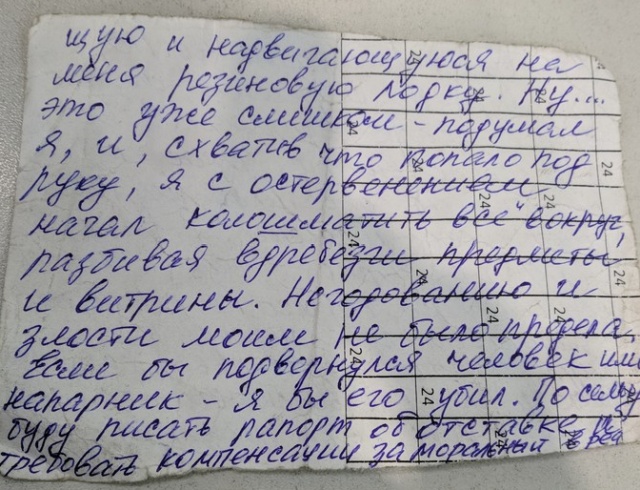 щую и надвигающуюся на
меня резиновую лодку. Ну...
это уже слишком - подумал
я, и, схватив что попало под
руку, я с остервенением
начал колошматить все вокруг,
разбивая вдребезги предметы
и витрины. Негодованию и
злости моим не было предела.
Если бы подвернулся человек или
напарник - я бы его убил. По
буду писать рапорт об отставке и
требовать компенсации за моральный
24
24
24
24
24
24
24
24
24
24
24
24
24